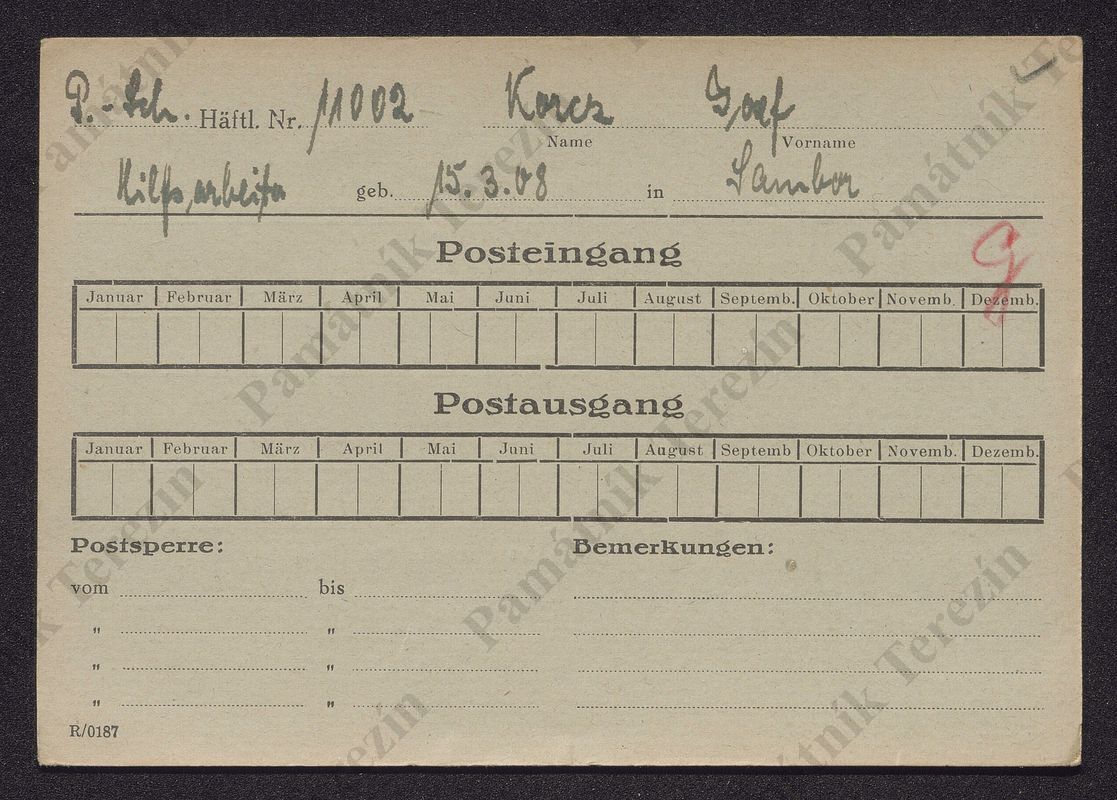 P.-Sch. Häftl. Nr. 11002 Korcz Josef
Name Vorname
Hilfsarbeiter geb. 15.3.08 in Sambor
Posteingang
Januar Februar März April Mai Juni Juli August Septemb. Oktober Novemb. Dezemb.
Postausgang
Januar Februar März April Mai Juni Juli August Septemb Oktober Novemb. Dezemb.
Postsperre: Bemerkungen:
vom bis
" "
" "
" "
R/0187
Památník Terezín